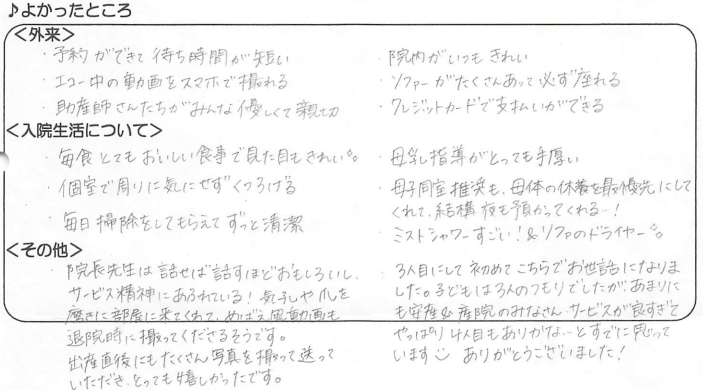 ♪よかったところ
<外来>
・予約ができて待ち時間が短い
・エコー中の動画をスマホで撮れる
・助産師さんたちがみんな優しくて親切
・院内がいつもきれい
・ソファーがたくさんあって必ず座れる
・クレジットカードで支払いができる
<入院生活について>
・毎食とてもおいしい食事で見た目もきれい。
・個室で周りに気にせずくつろげる
・毎日掃除をしてもらえてずっと清潔
・母乳指導がとっても手厚い
・母子同室推奨も、母体の休養を最優先にして
くれて、結構夜も預かってくれる…!
・ミストシャワーすごい!&リファのドライヤー。
<その他>
・院長先生は話せば話すほどおもしろいし、
サービス精神にあふれている! 気子しや爪を
磨きに部屋に来てくれて、めばえ風動画も
退院時に撮ってくださるそうです。
出産直後にもたくさん写真を撮って送って
いただき、とっても嬉しかったです。
・3人目にして初めてこちらでお世話になりま
した。子どもは3人のつもりでしたが、あまりに
も安産&産院のみなさん、サービスが良すぎて
やっぱり4人目もありかな…とすでに思って
います ありがとうございました!